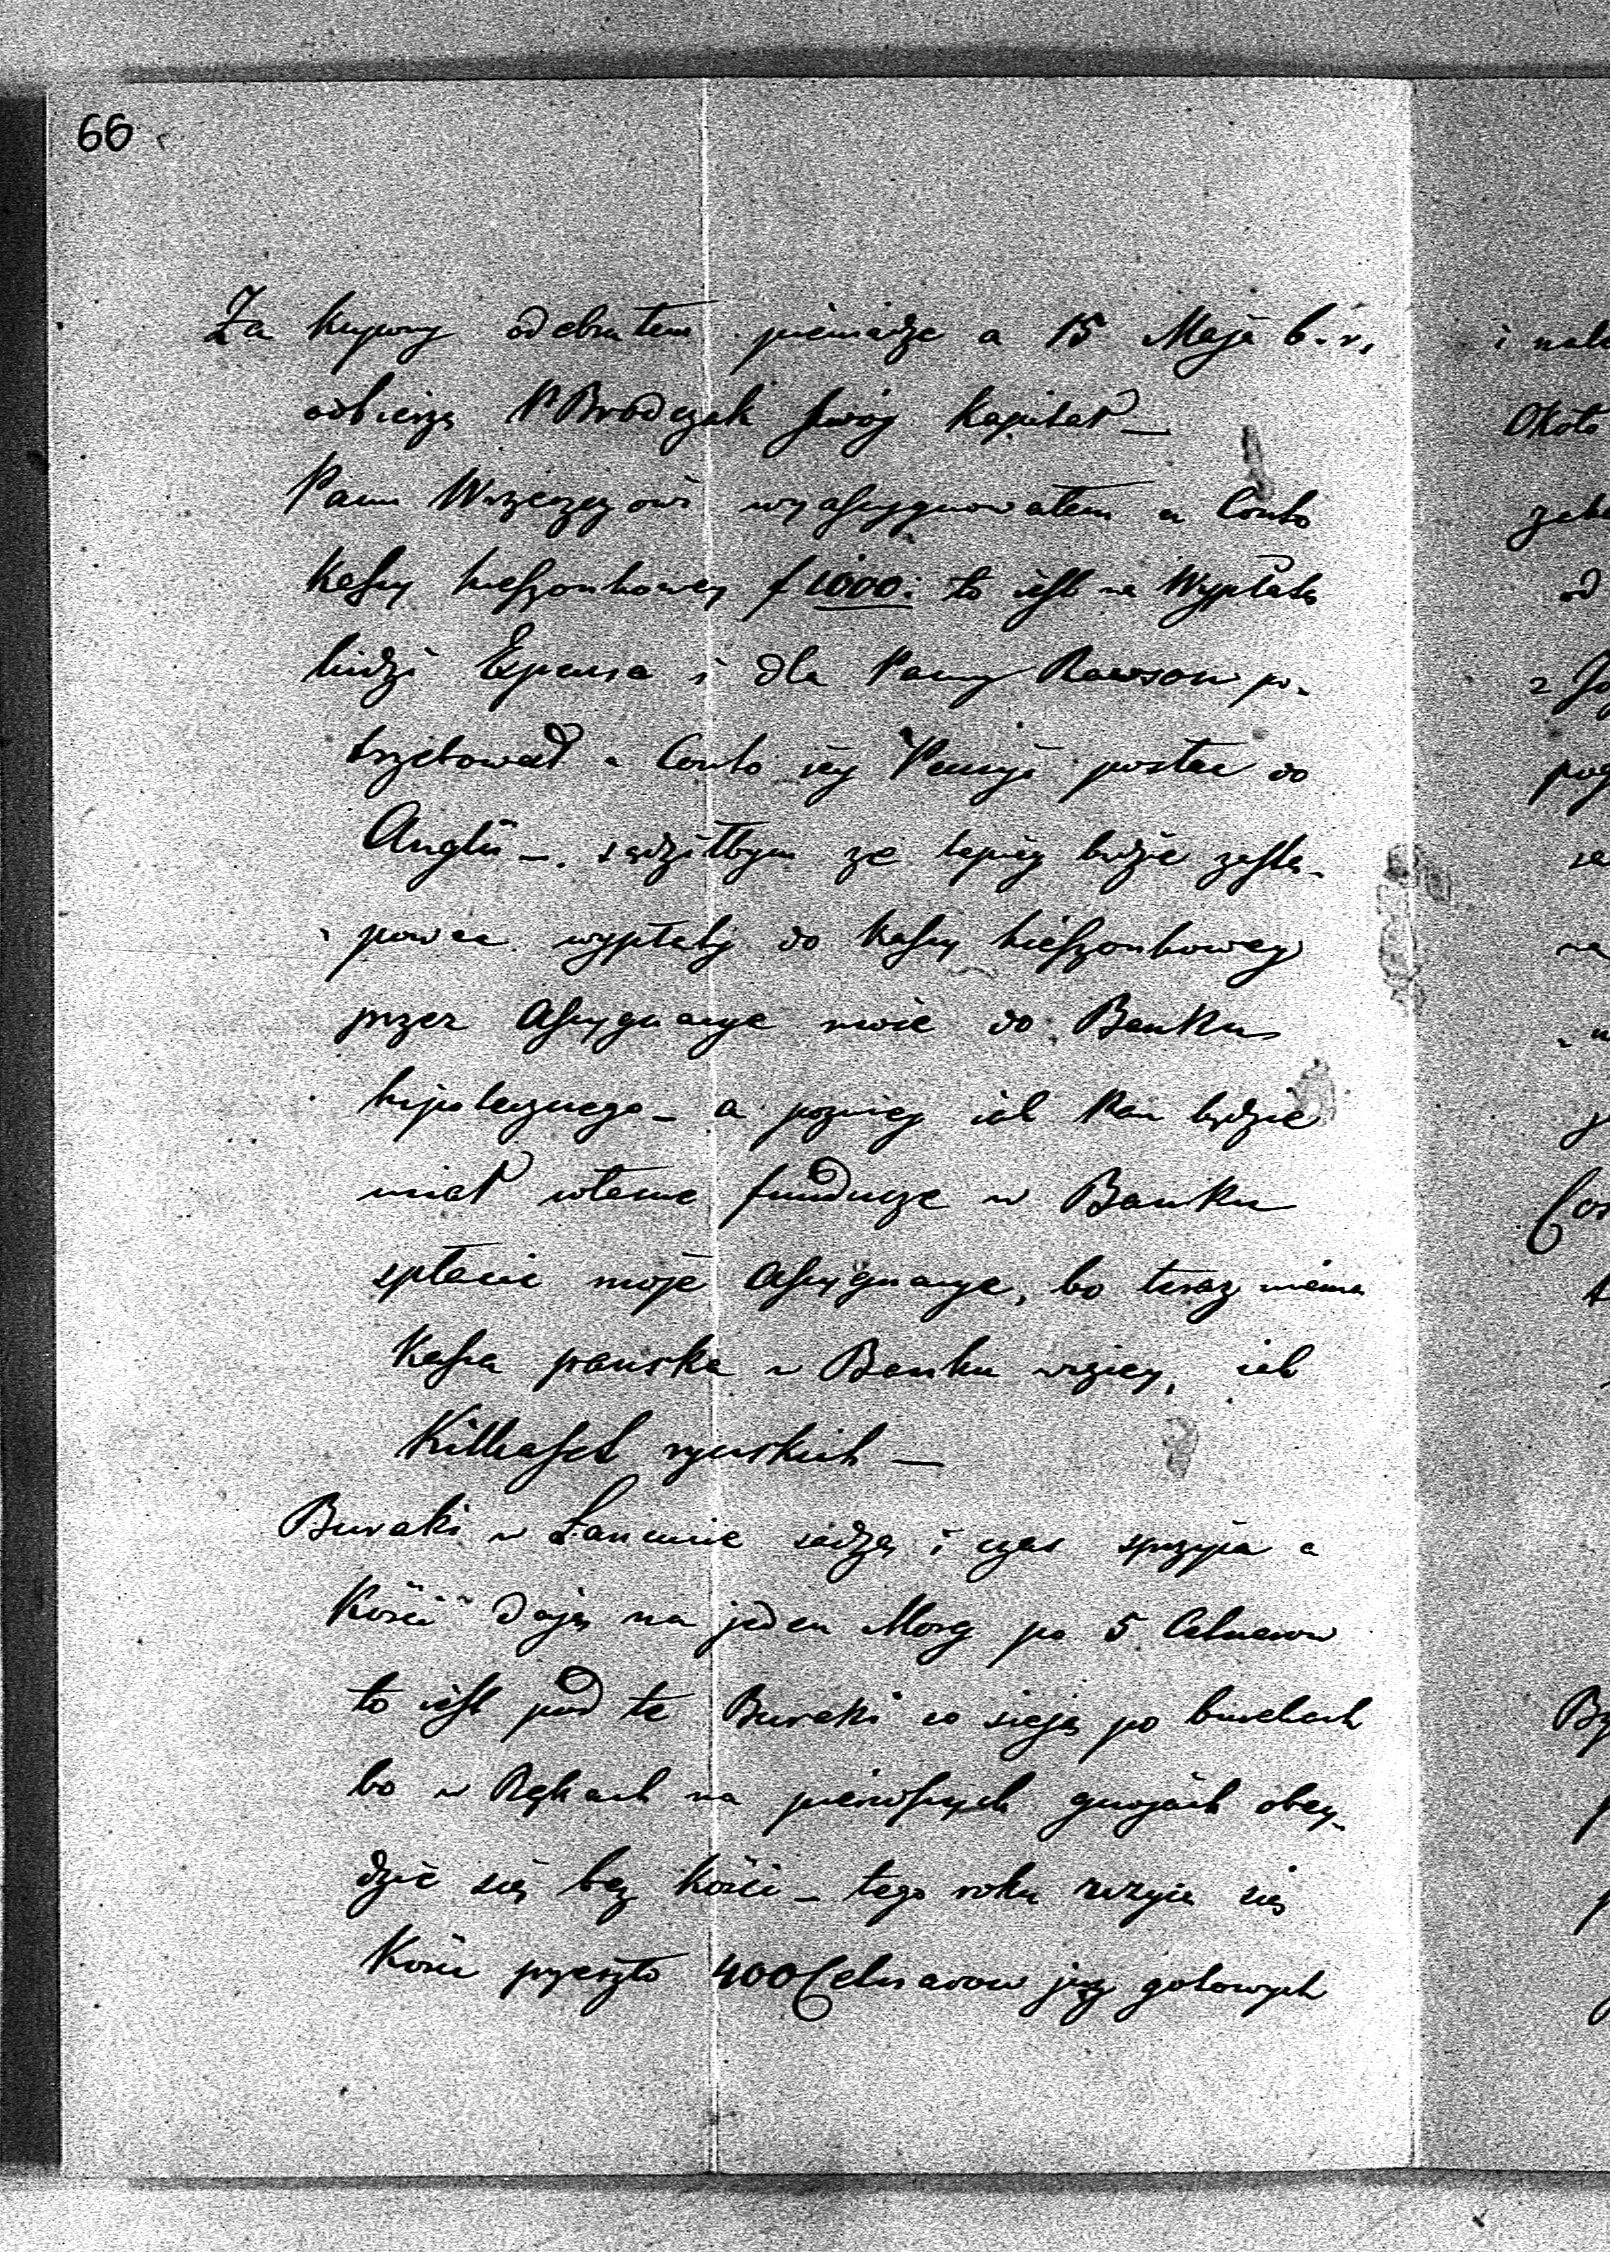 66
Za kupony odebrałem pieniądze a 15 Maja b. r.
odbierze P Brodczak swój kapitał –
Panu Wrzeszczowi wyassygnowałem a Conto
Kassy kieszonkowey f 1000: to iest na Wypłatę
ludzi Expensa i dla Panny Rawson po-
trzebował a Conto jey Pensyi posłać do
Anglii –. sądziłbym że lepiey będzie zastę-
pować wypłaty do kassy kieszonkowey
przez assygnacye moie do Banku
hipotecznego – a pozniey iak Pan będzie
miał własne fundusze w Banku
spłacic moje assygnacye, bo teraz niema
Kassa panska w Banku więcey, iak
Kilkaset rynskich –
Buraki w Łancucie sadzą i czas sprzyja a
Kości dają na jeden Morg po 5 Cetnarow
to iest pod te Buraki co sieją po burakach
bo w Rękach na pierwszych gnojach obey-
dzie się bez kości – tego roku zuzyie się
Kości przeszło 400 Cetnarow już gotowych
i nale
Około
od